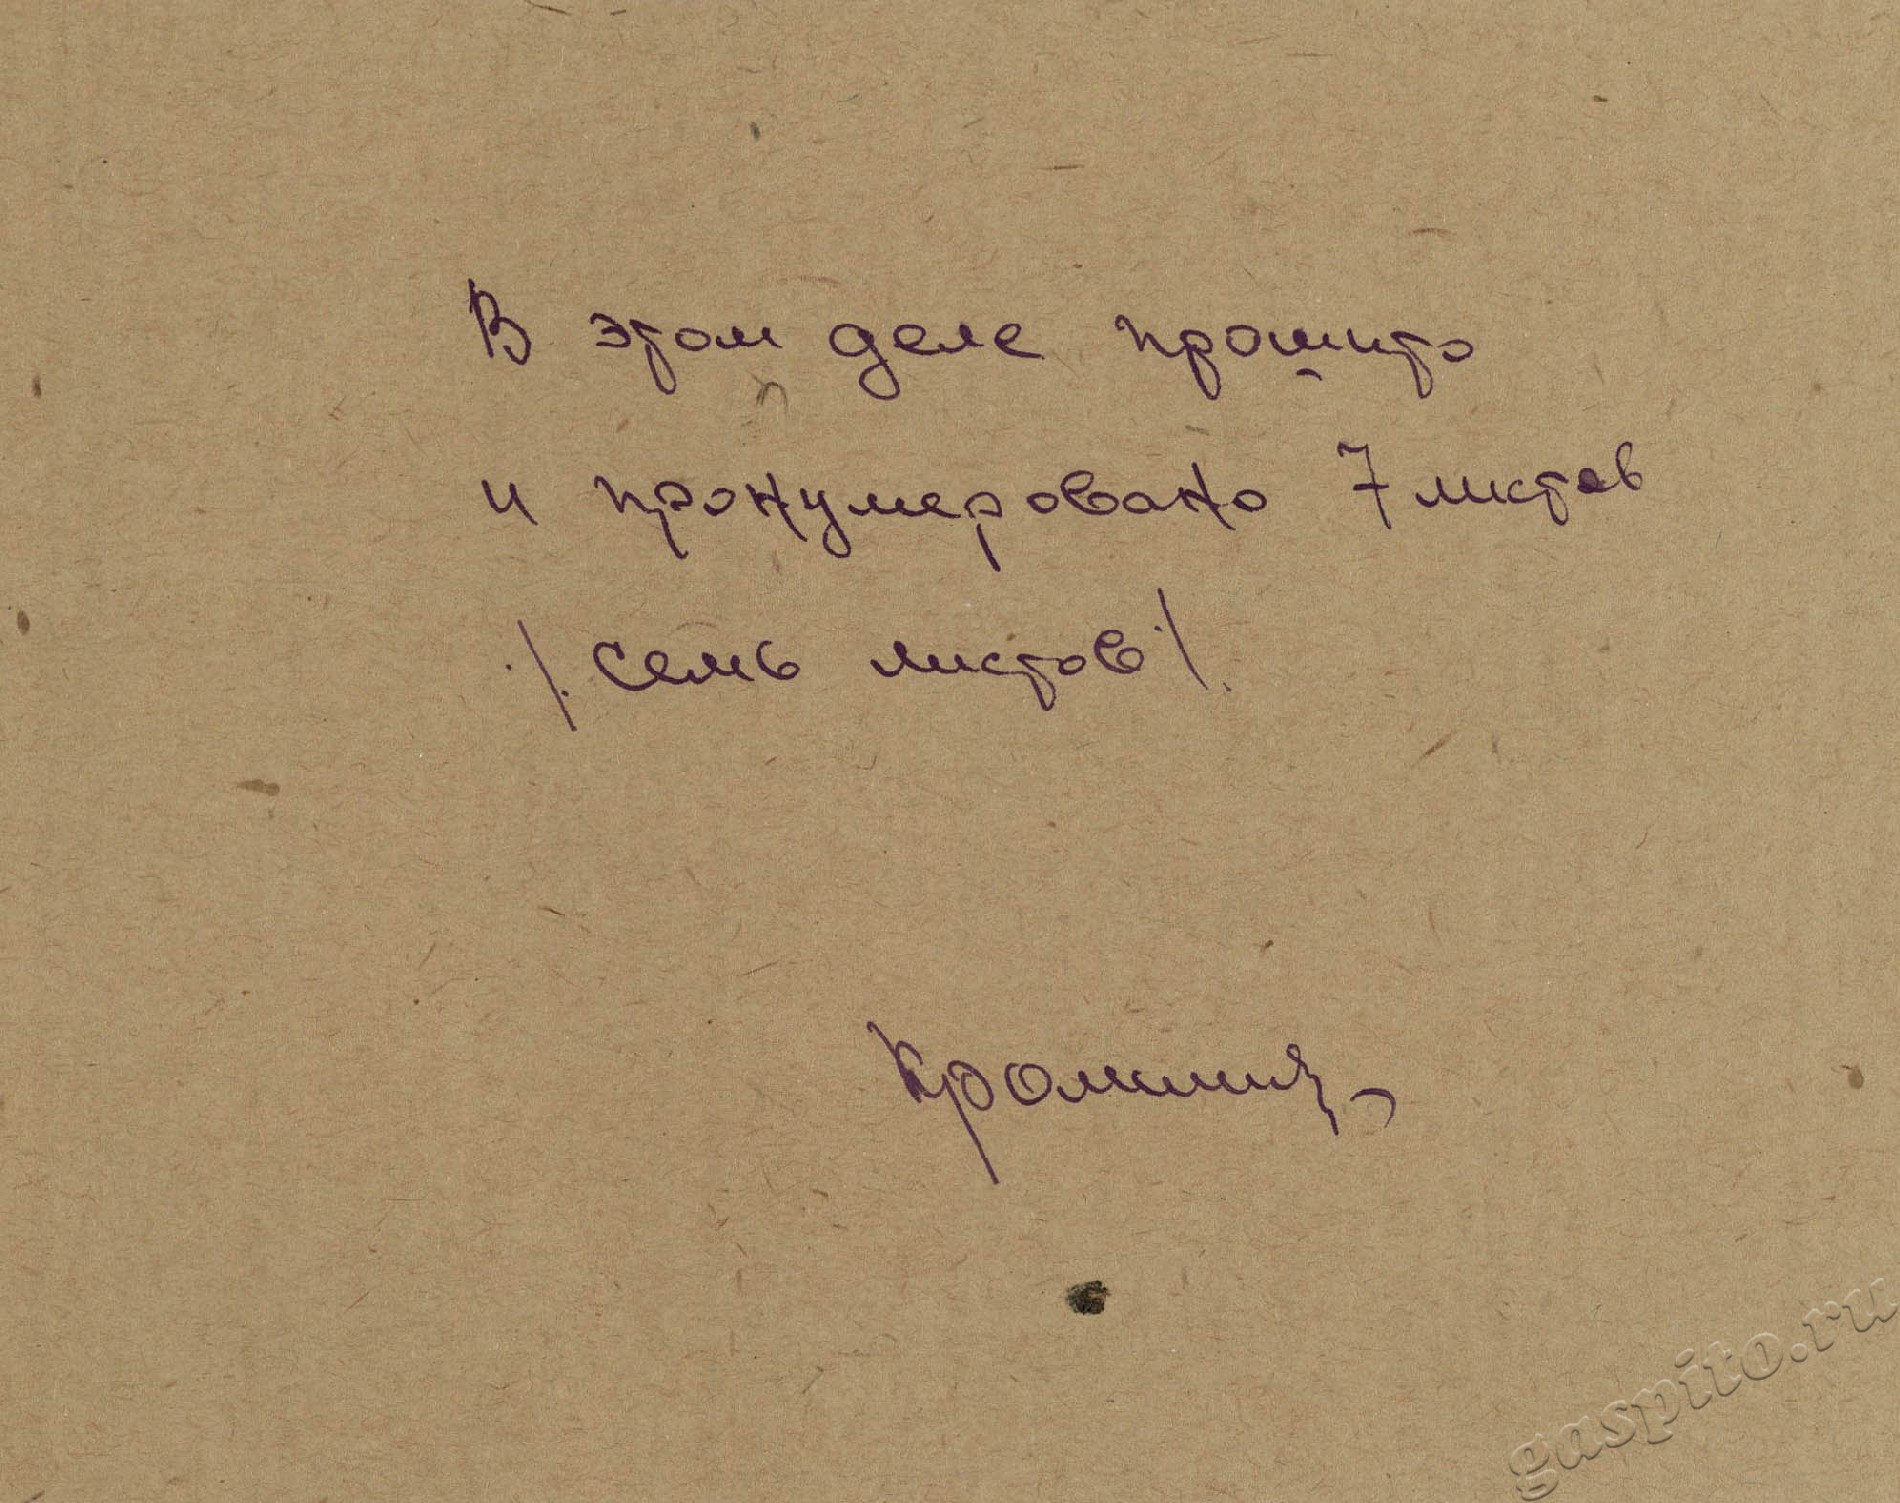 В этом деле прошито
и пронумеровано 7 листов
/. семь листов /.
gaspito.ru